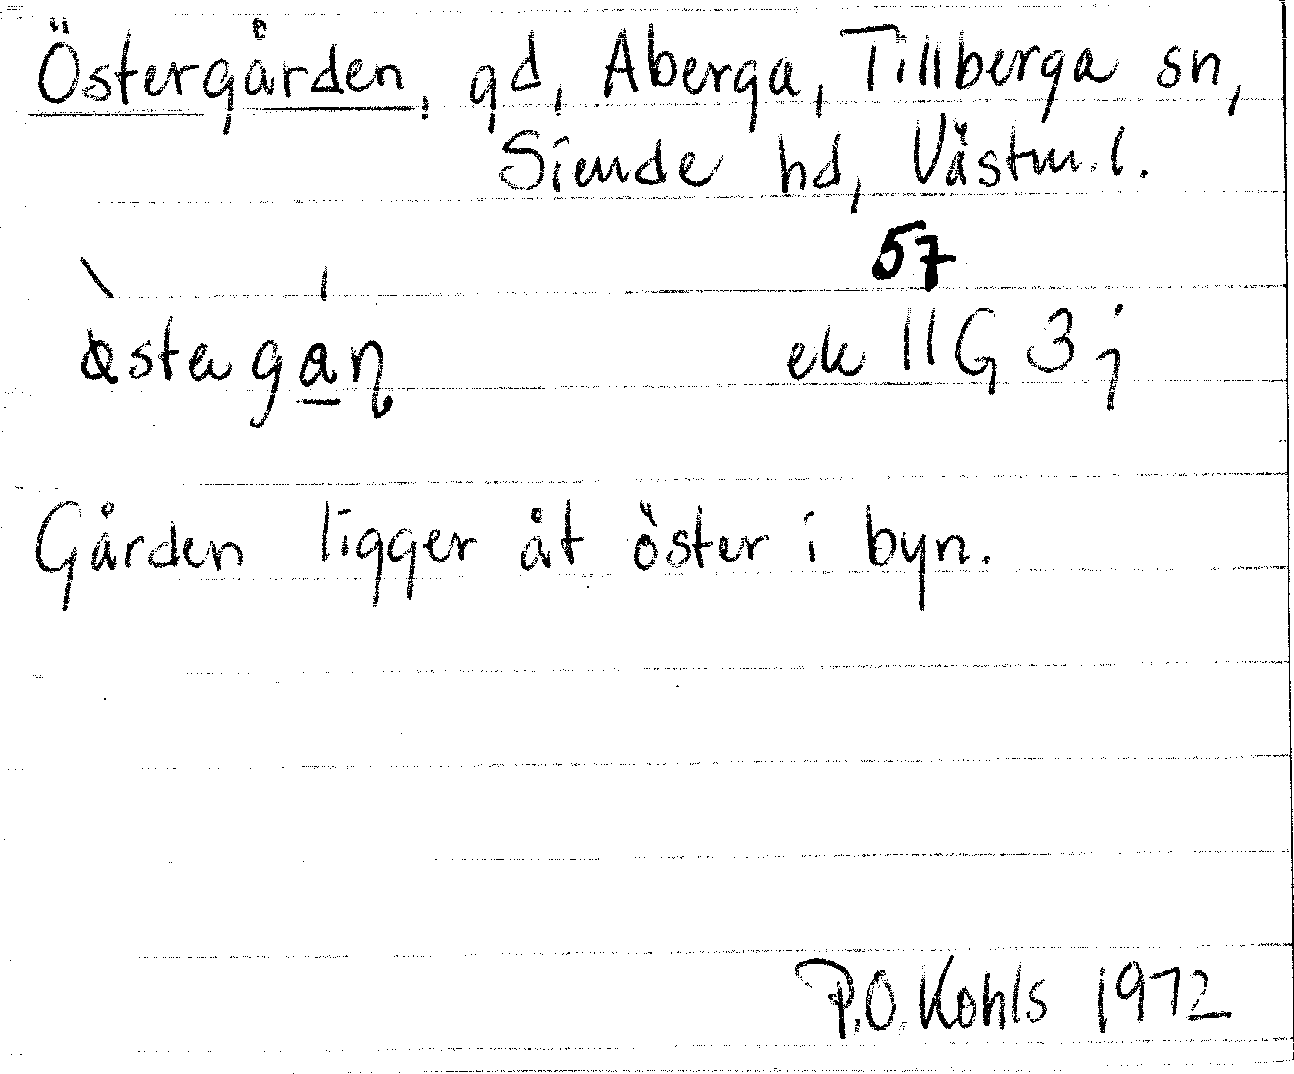 Östergården, gd, Åberga, Tillberga sn,
Siende hd, Västm. l.
57
ek 11G 3j
Gården ligger åt öster i byn.
P.O. Kohls 1972